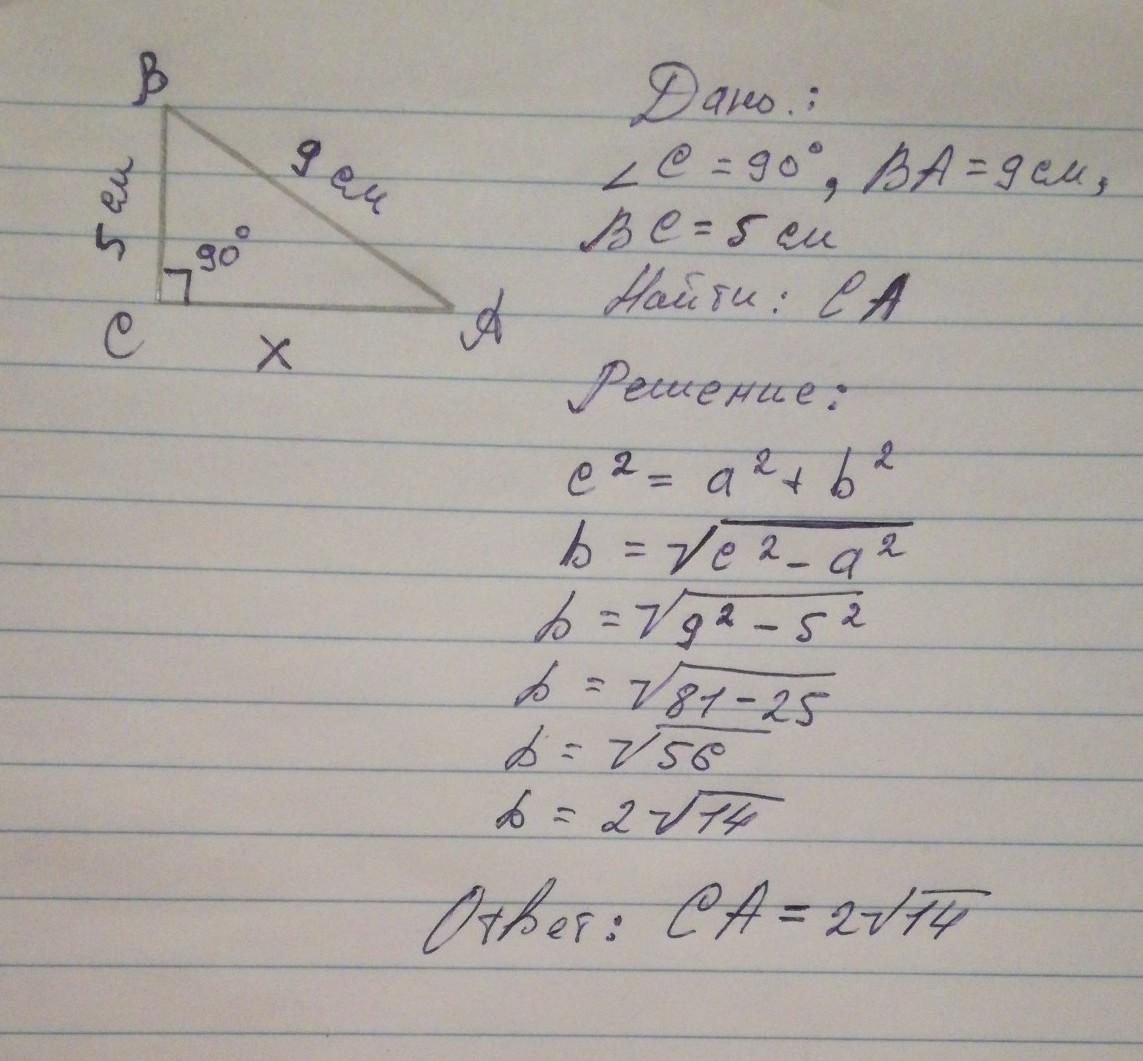 B
9 см
5 см
90°
C
X
A
Дано.:
∠C = 90°, BA = 9 см,
BC = 5 см
Найти: CA
Решение:
c² = a² + b²
b = √(c² - a²)
b = √(9² - 5²)
b = √(81 - 25)
b = √56
b = 2√14
Ответ: CA = 2√14